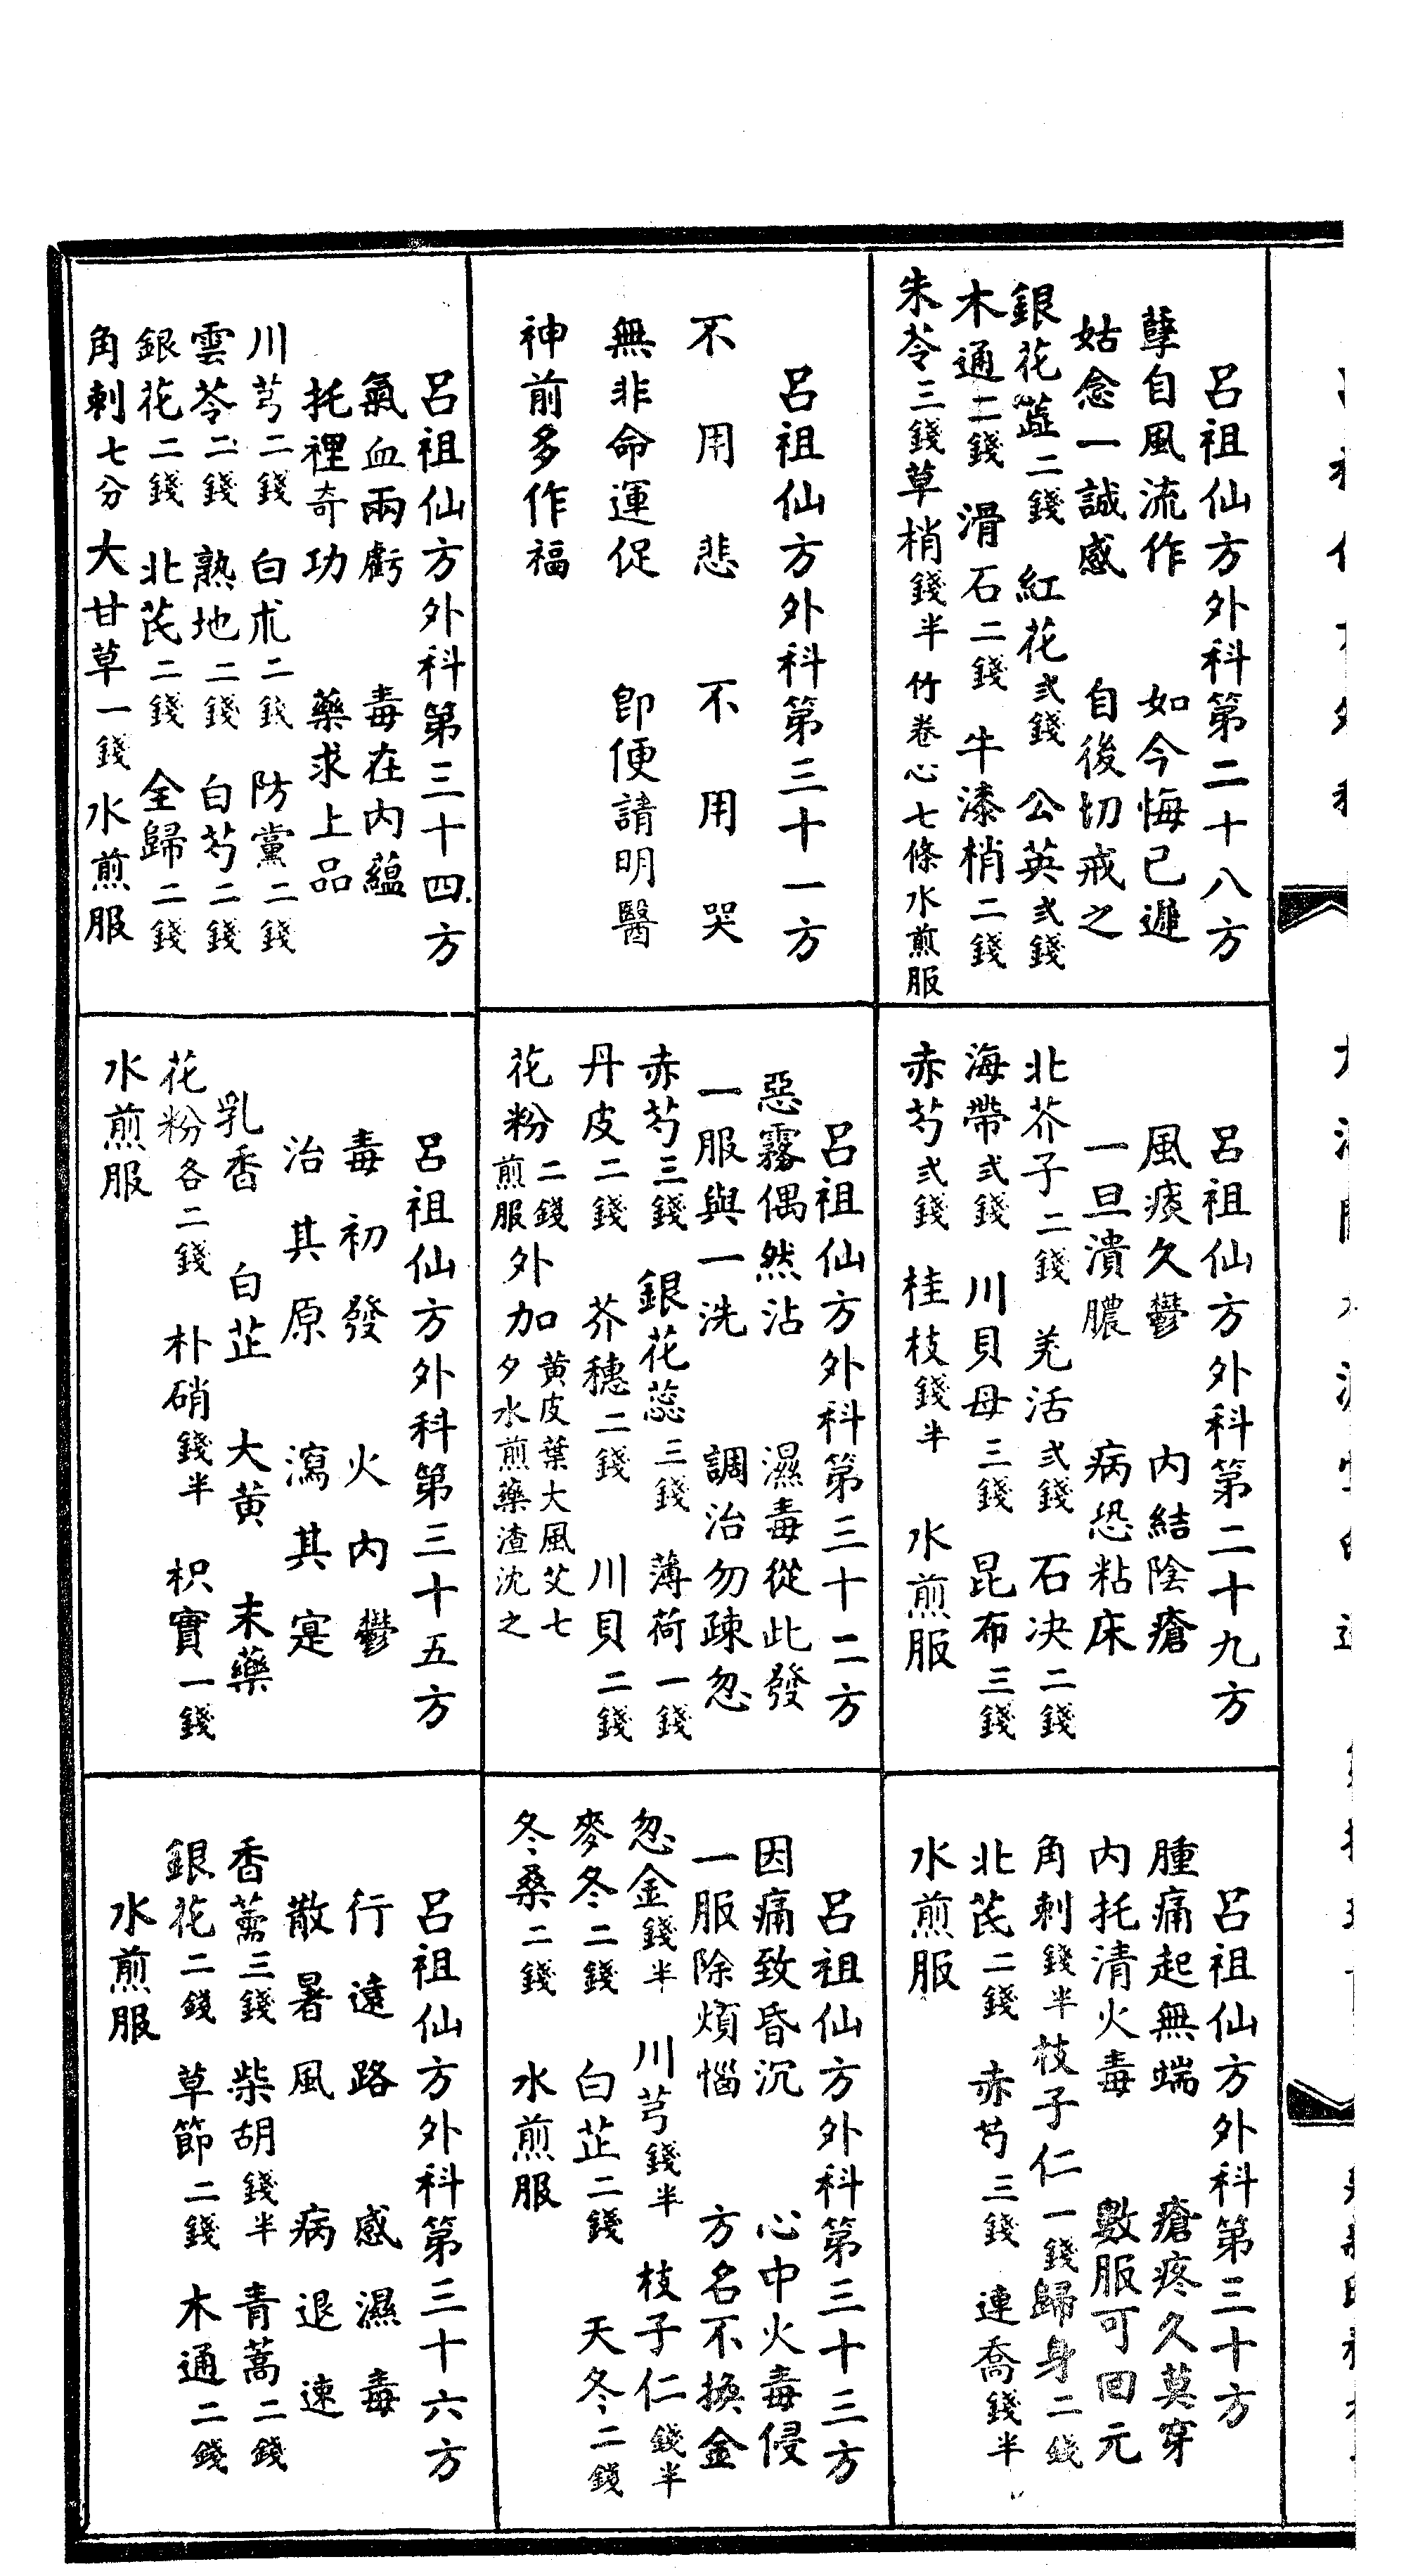 呂祖仙方外科第二十八方
孽自風流作　如今悔已遲
姑念一誠感　自後切戒之
銀花蕋二錢　紅花弍錢　公英弍錢
木通二錢　滑石二錢　牛漆梢二錢
朱苓三錢草梢錢半　竹卷心七條水煎服
呂祖仙方外科第二十九方
風痰久鬱　內結陰瘡
一旦潰膿　病恐粘床
北芥子二錢　羌活弍錢　石决二錢
海帶弍錢　川貝母三錢　昆布三錢
赤芍弍錢　桂枝錢半　水煎服
呂祖仙方外科第三十方
腫痛起無端　瘡疼久莫穿
內托清火毒　數服可回元
角刺錢半枝子仁一錢歸身二錢
北芪二錢　赤芍三錢　連喬錢半
水煎服
呂祖仙方外科第三十一方
不用悲　不用哭
無非命運促　即便請明醫
神前多作福
呂祖仙方外科第三十二方
惡霧偶然沾　濕毒從此發
一服與一洗　調治勿疎忽
赤芍三錢　銀花蕊三錢　薄荷一錢
丹皮二錢　芥穗二錢　川貝二錢
花粉二錢煎服外加黃皮葉大風艾七夕水煎藥渣沈之
呂祖仙方外科第三十三方
因痛致昏沉　心中火毒侵
一服除煩惱　方名不換金
忽金錢半　川芎錢半　枝子仁錢半
麥冬二錢　白芷二錢　天冬二錢
冬桑二錢　水煎服
呂祖仙方外科第三十四方
氣血兩虧　毒在內蘊
托裡奇功　藥求上品
川芎二錢　白朮二錢　防黨二錢
雲苓二錢　熟地二錢　白芍二錢
銀花二錢　北芪二錢　全歸二錢
角刺七分大甘草一錢水煎服
呂祖仙方外科第三十五方
毒初發　火內鬱
治其原　瀉其寔
乳香　白芷　大黃　末藥
花粉各二錢　朴硝錢半　枳實一錢
水煎服
呂祖仙方外科第三十六方
行遠路　感濕毒
散暑風　病退速
香薷三錢　柴胡錢半　青蒿二錢
銀花二錢　草節二錢　木通二錢
水煎服